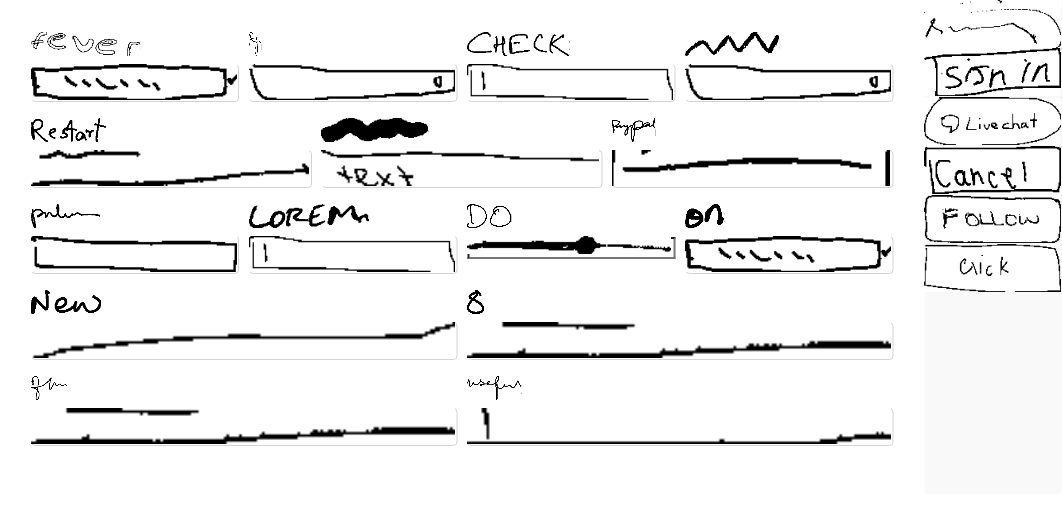 fever
CHECK
Restart
Paypal
text
LOREM
DO
on
New
8
useful
Sign in
Live chat
Cancel
FOLLOW
Click